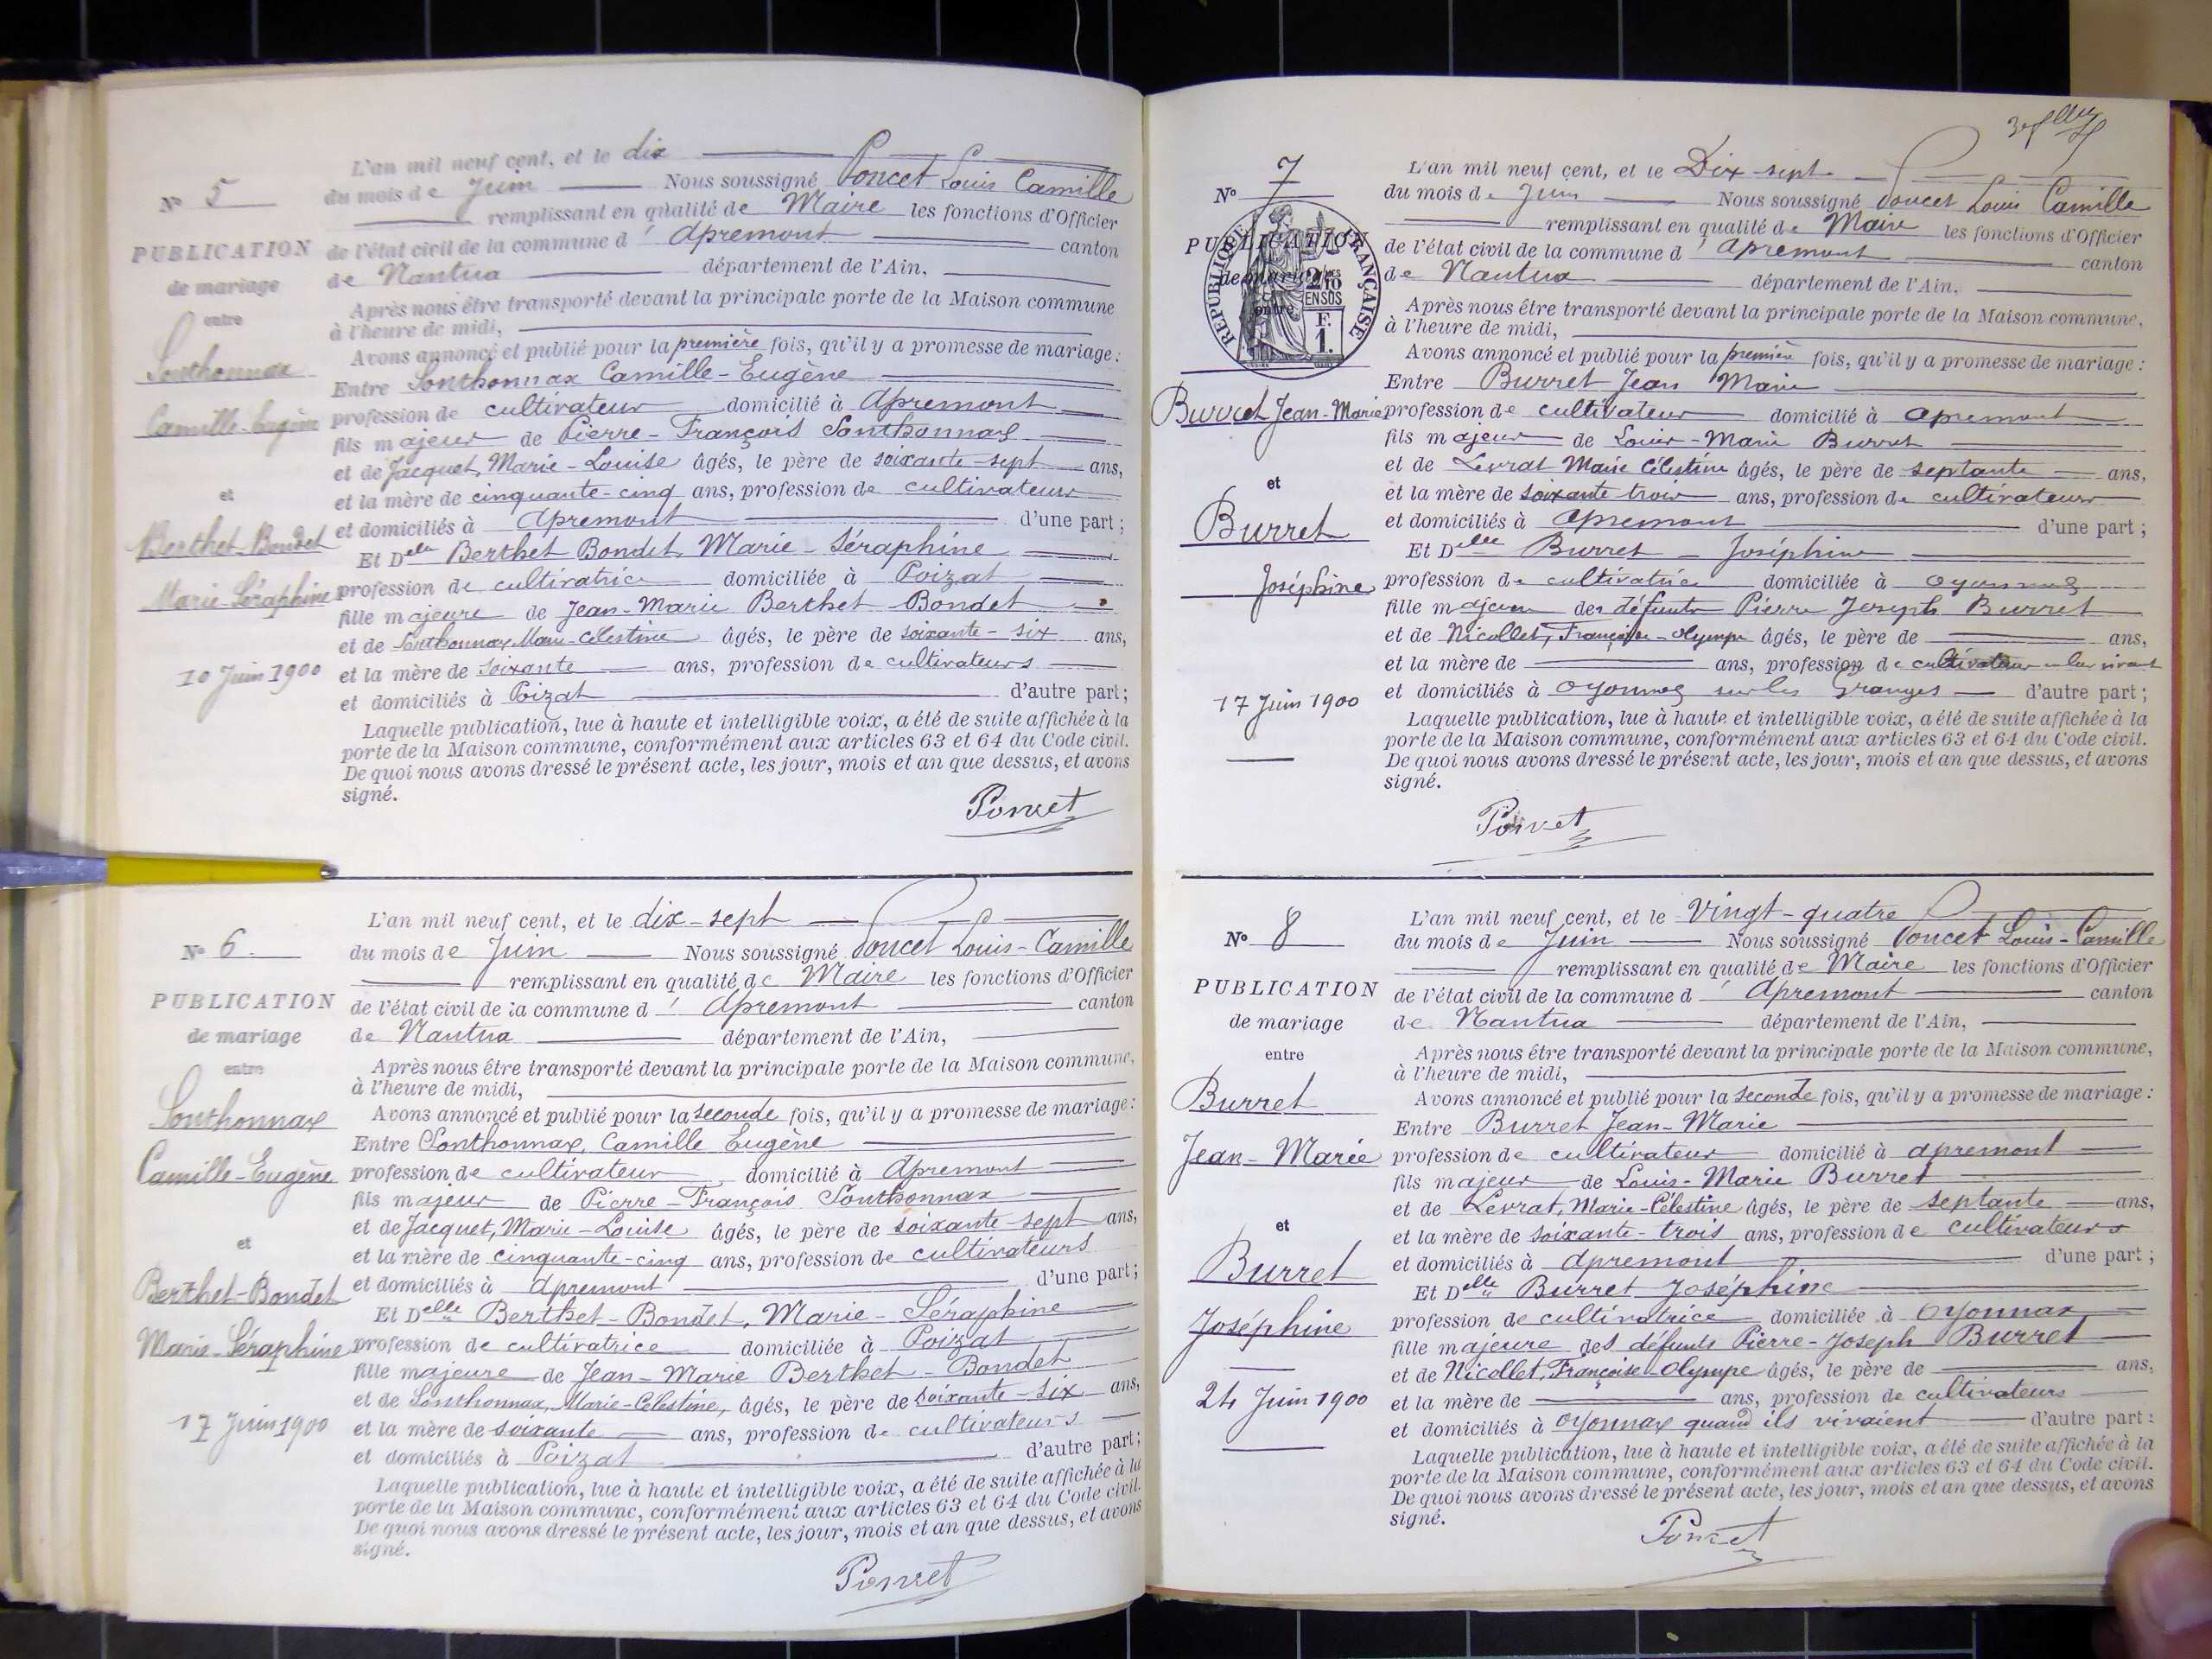 L'an mil neuf cent, et le dix
N° 5 du mois de Juin Nous soussigné Poncet Louis Camille
remplissant en qualité de Maire les fonctions d'Officier
PUBLICATION de l'état civil de la commune d' Apremont canton
de mariage de Nantua département de l'Ain,
entre Après nous être transporté devant la principale porte de la Maison commune
à l'heure de midi,
Avons annoncé et publié pour la première fois, qu'il y a promesse de mariage :
Sonthonnax Entre Sonthonnax Camille-Eugène
Camille-Eugène profession de cultivateur domicilié à Apremont
fils majeur de Pierre-François Sonthonnax
et de Jacquet, Marie-Louise âgés, le père de soixante-sept ans,
et et la mère de cinquante-cinq ans, profession de cultivateurs
et domiciliés à Apremont d'une part ;
Berthet-Bondet Et Delle Berthet Bondet Marie-Séraphine
Marie-Séraphine profession de cultivatrice domiciliée à Poizat
fille majeure de Jean-Marie Berthet-Bondet
et de Sonthonnax Marie-Célestine âgés, le père de soixante-six ans,
10 Juin 1900 et la mère de soixante ans, profession de cultivateurs
et domiciliés à Poizat d'autre part ;
Laquelle publication, lue à haute et intelligible voix, a été de suite affichée à la
porte de la Maison commune, conformément aux articles 63 et 64 du Code civil.
De quoi nous avons dressé le présent acte, les jour, mois et an que dessus, et avons
signé.
Poncet
L'an mil neuf cent, et le dix-sept
N° 6 du mois de Juin Nous soussigné Poncet Louis-Camille
remplissant en qualité de Maire les fonctions d'Officier
PUBLICATION de l'état civil de la commune d' Apremont canton
de mariage de Nantua département de l'Ain,
entre Après nous être transporté devant la principale porte de la Maison commune,
à l'heure de midi,
Sonthonnax Avons annoncé et publié pour la seconde fois, qu'il y a promesse de mariage :
Entre Sonthonnax, Camille Eugène
Camille-Eugène profession de cultivateur domicilié à Apremont
fils majeur de Pierre-François Sonthonnax
et de Jacquet, Marie-Louise âgés, le père de soixante-sept ans,
et et la mère de cinquante-cinq ans, profession de cultivateurs
Berthet-Bondet et domiciliés à Apremont d'une part ;
Et Delle Berthet-Bondet, Marie-Séraphine
Marie-Séraphine profession de cultivatrice domiciliée à Poizat
fille majeure de Jean-Marie Berthet-Bondet
et de Sonthonnax, Marie-Célestine, âgés, le père de soixante-six ans,
17 Juin 1900 et la mère de soixante ans, profession de cultivateurs
et domiciliés à Poizat d'autre part ;
Laquelle publication, lue à haute et intelligible voix, a été de suite affichée à la
porte de la Maison commune, conformément aux articles 63 et 64 du Code civil.
De quoi nous avons dressé le présent acte, les jour, mois et an que dessus, et avons
signé.
Poncet
L'an mil neuf cent, et le Dix-sept
N° 7 du mois de Juin Nous soussigné Poncet Louis Camille
remplissant en qualité de Maire les fonctions d'Officier
PUBLICATION de l'état civil de la commune d' Apremont canton
de mariage de Nantua département de l'Ain,
RÉPUBLIQUE FRANÇAISE
2/10 EN SUS
F. 1.
entre Après nous être transporté devant la principale porte de la Maison commune,
à l'heure de midi,
Avons annoncé et publié pour la première fois, qu'il y a promesse de mariage :
Entre Burret Jean Marie
Burret Jean-Marie profession de cultivateur domicilié à Apremont
fils majeur de Louis-Marie Burret
et de Levrat Marie Célestine âgés, le père de septante ans,
et et la mère de soixante trois ans, profession de cultivateurs
Burret et domiciliés à Apremont d'une part ;
Et Delle Burret - Joséphine
Joséphine profession de cultivatrice domiciliée à Oyonnax
fille majeure des défunts Pierre Joseph Burret
et de Nicollet, Françoise-Olympe âgés, le père de ans,
et la mère de ans, profession de cultivateurs en leur vivant
17 Juin 1900 et domiciliés à Oyonnax sur les Granges d'autre part ;
Laquelle publication, lue à haute et intelligible voix, a été de suite affichée à la
porte de la Maison commune, conformément aux articles 63 et 64 du Code civil.
De quoi nous avons dressé le présent acte, les jour, mois et an que dessus, et avons
signé.
Poncet
L'an mil neuf cent, et le Vingt-quatre
N° 8 du mois de Juin Nous soussigné Poncet Louis-Camille
remplissant en qualité de Maire les fonctions d'Officier
PUBLICATION de l'état civil de la commune d' Apremont canton
de mariage de Nantua département de l'Ain,
entre Après nous être transporté devant la principale porte de la Maison commune,
à l'heure de midi,
Burret Avons annoncé et publié pour la seconde fois, qu'il y a promesse de mariage :
Entre Burret Jean-Marie
Jean-Marie profession de cultivateur domicilié à Apremont
fils majeur de Louis-Marie Burret
et de Levrat, Marie-Célestine âgés, le père de septante ans,
et et la mère de soixante-trois ans, profession de cultivateurs
Burret et domiciliés à Apremont d'une part ;
Et Delle Burret Joséphine
Joséphine profession de cultivatrice domiciliée à Oyonnax
fille majeure des défunts Pierre-Joseph Burret
et de Nicollet, Françoise-Olympe âgés, le père de ans,
24 Juin 1900 et la mère de ans, profession de cultivateurs
et domiciliés à Oyonnax quand ils vivaient d'autre part :
Laquelle publication, lue à haute et intelligible voix, a été de suite affichée à la
porte de la Maison commune, conformément aux articles 63 et 64 du Code civil.
De quoi nous avons dressé le présent acte, les jour, mois et an que dessus, et avons
signé.
Poncet